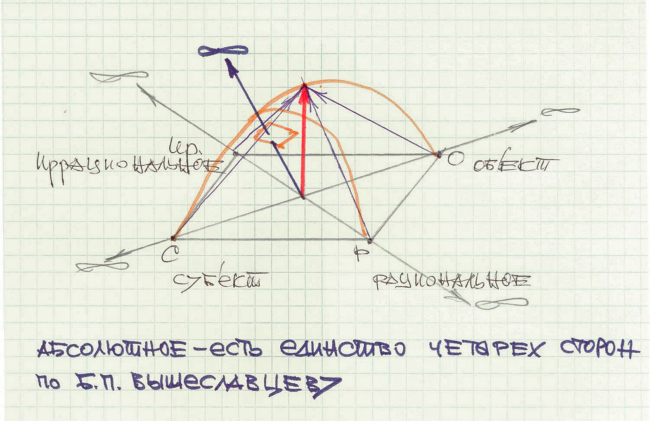 Ир.
Иррациональное
О об'ект
С
суб'ект
Р
рациональное
Абсолютное – есть единство четырех сторон
по Б.П. Вышеславцеву